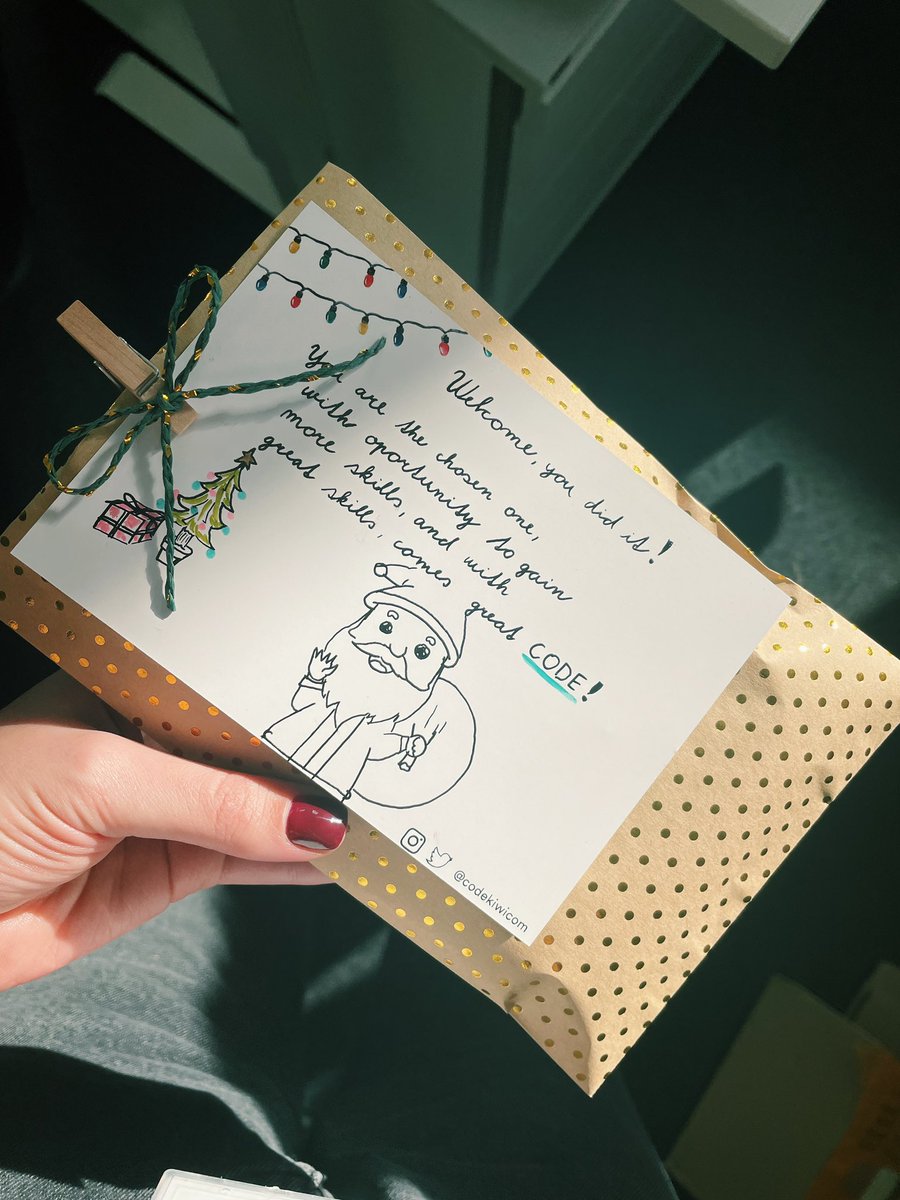 Welcome, you did it!
You are the chosen one,
with oportunity to gain
more skills, and with
great skills, comes great CODE!
@codekiwicom